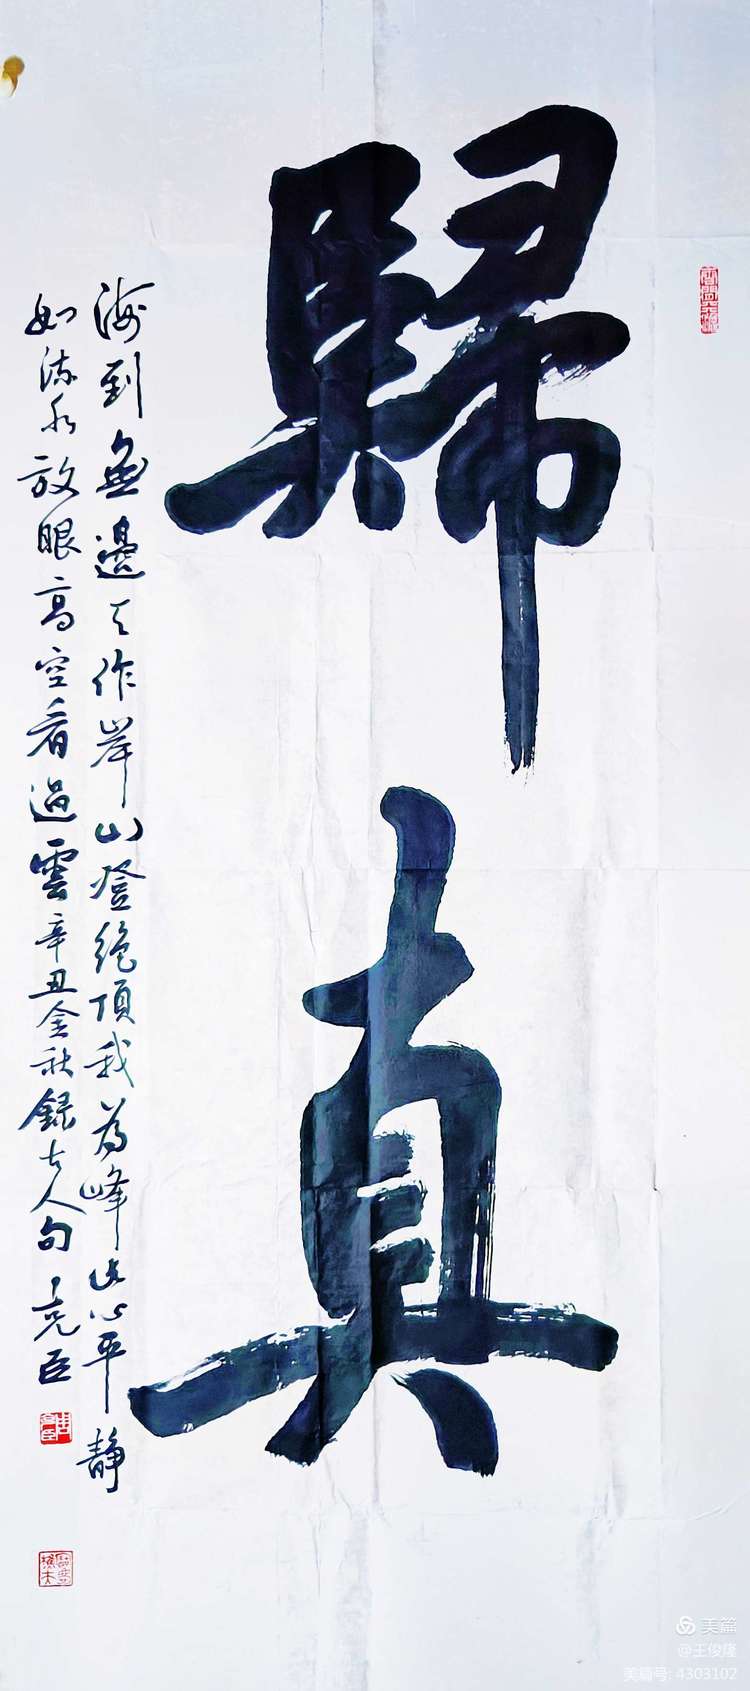 歸真
海到無邊天作岸山登絕頂我為峰
心平靜
如流水放眼高空看過雲辛丑金秋錄古人句亮臣
美篇
@王俊隆
美篇号: 4303102